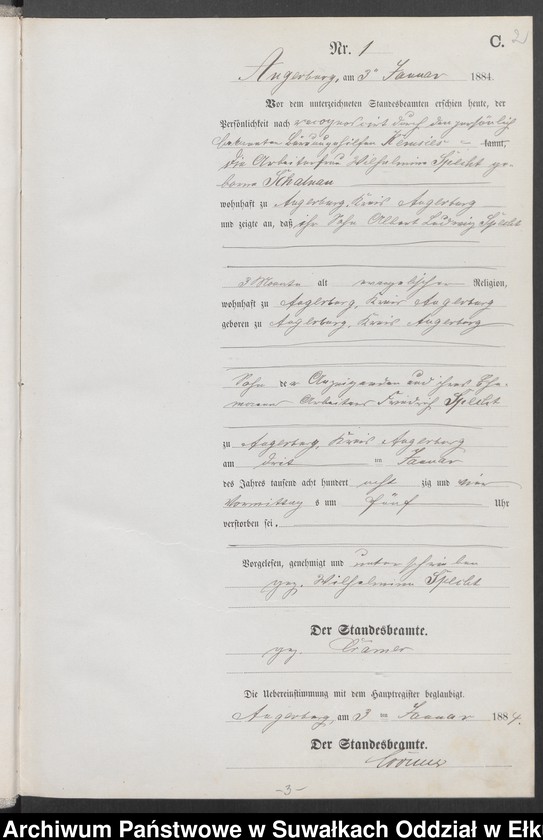 C. 2
Nr. 1
Angerburg, am 3ⁿ Januar 1884.
Vor dem unterzeichneten Standesbeamten erschien heute, der
Persönlichkeit nach durch den persönlich
bekannten kannt,
die Arbeiterfrau Wilhelmine Specht ge-
borne
wohnhaft zu Angerburg, Kreis Angerburg
und zeigte an, daß ihr Sohn Albert Ludwig Specht
3 Monate alt evangelischer Religion,
wohnhaft zu Angerburg, Kreis Angerburg
geboren zu Angerburg, Kreis Angerburg
Sohn der Anzeigenden und ihres Ehe-
manns Arbeiters Friedrich Specht
zu Angerburg, Kreis Angerburg
am drit en Januar
des Jahres tausend acht hundert acht zig und vier
Vormittag s um fünf Uhr
verstorben sei.
Vorgelesen, genehmigt und unterschrieben
gez. Wilhelmine Specht
Der Standesbeamte.
gez.
Die Uebereinstimmung mit dem Hauptregister beglaubigt.
Angerburg, am 3 en Januar 1884.
Der Standesbeamte.
-3-
Archiwum Państwowe w Suwałkach Oddział w Ełk